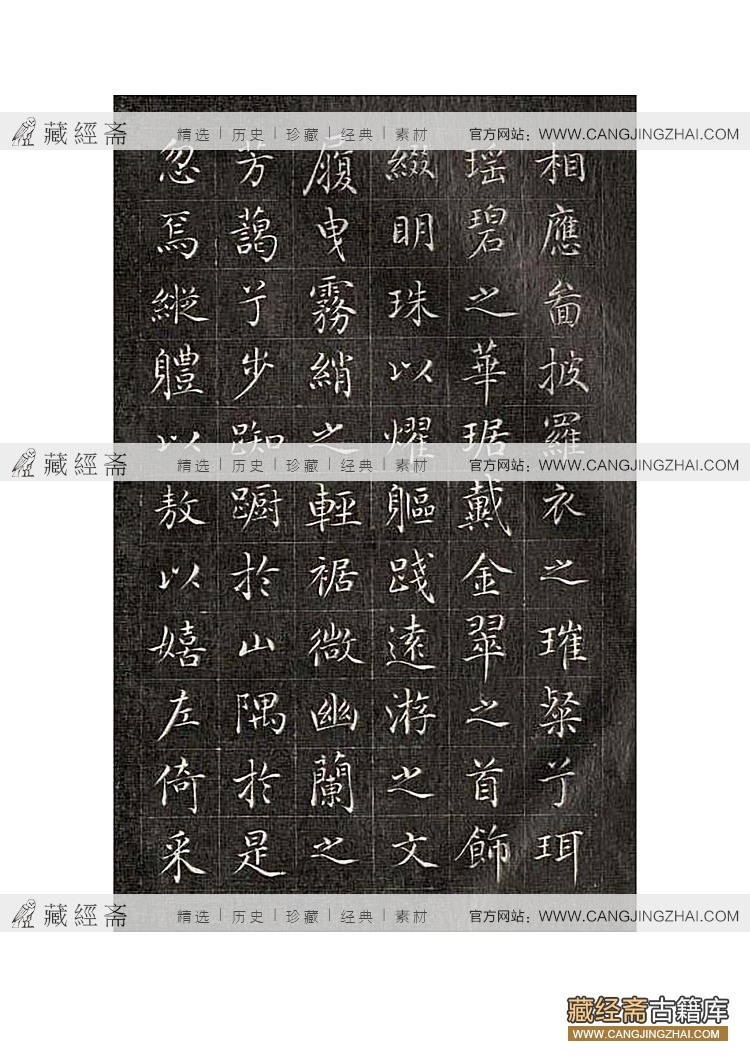 藏經斋 精选 | 历史 | 珍藏 | 经典 | 素材 官方网站：www.CANGJINGZHAI.COM
相應畣披羅衣之璀粲兮珥
瑶碧之華琚戴金翠之首飾
綴眀珠以燿軀踐遠游之文
履曳霧綃之輕裾微幽蘭之
芳藹兮步踟蹰於山隅於是
忽焉縱體以敖以嬉左倚采
藏經斋 精选 | 历史 | 珍藏 | 经典 | 素材 官方网站：www.CANGJINGZHAI.COM
藏經斋 精选 | 历史 | 珍藏 | 经典 | 素材 官方网站：www.CANGJINGZHAI.COM
藏经斋古籍库
WWW.CANGJINGZHAI.COM